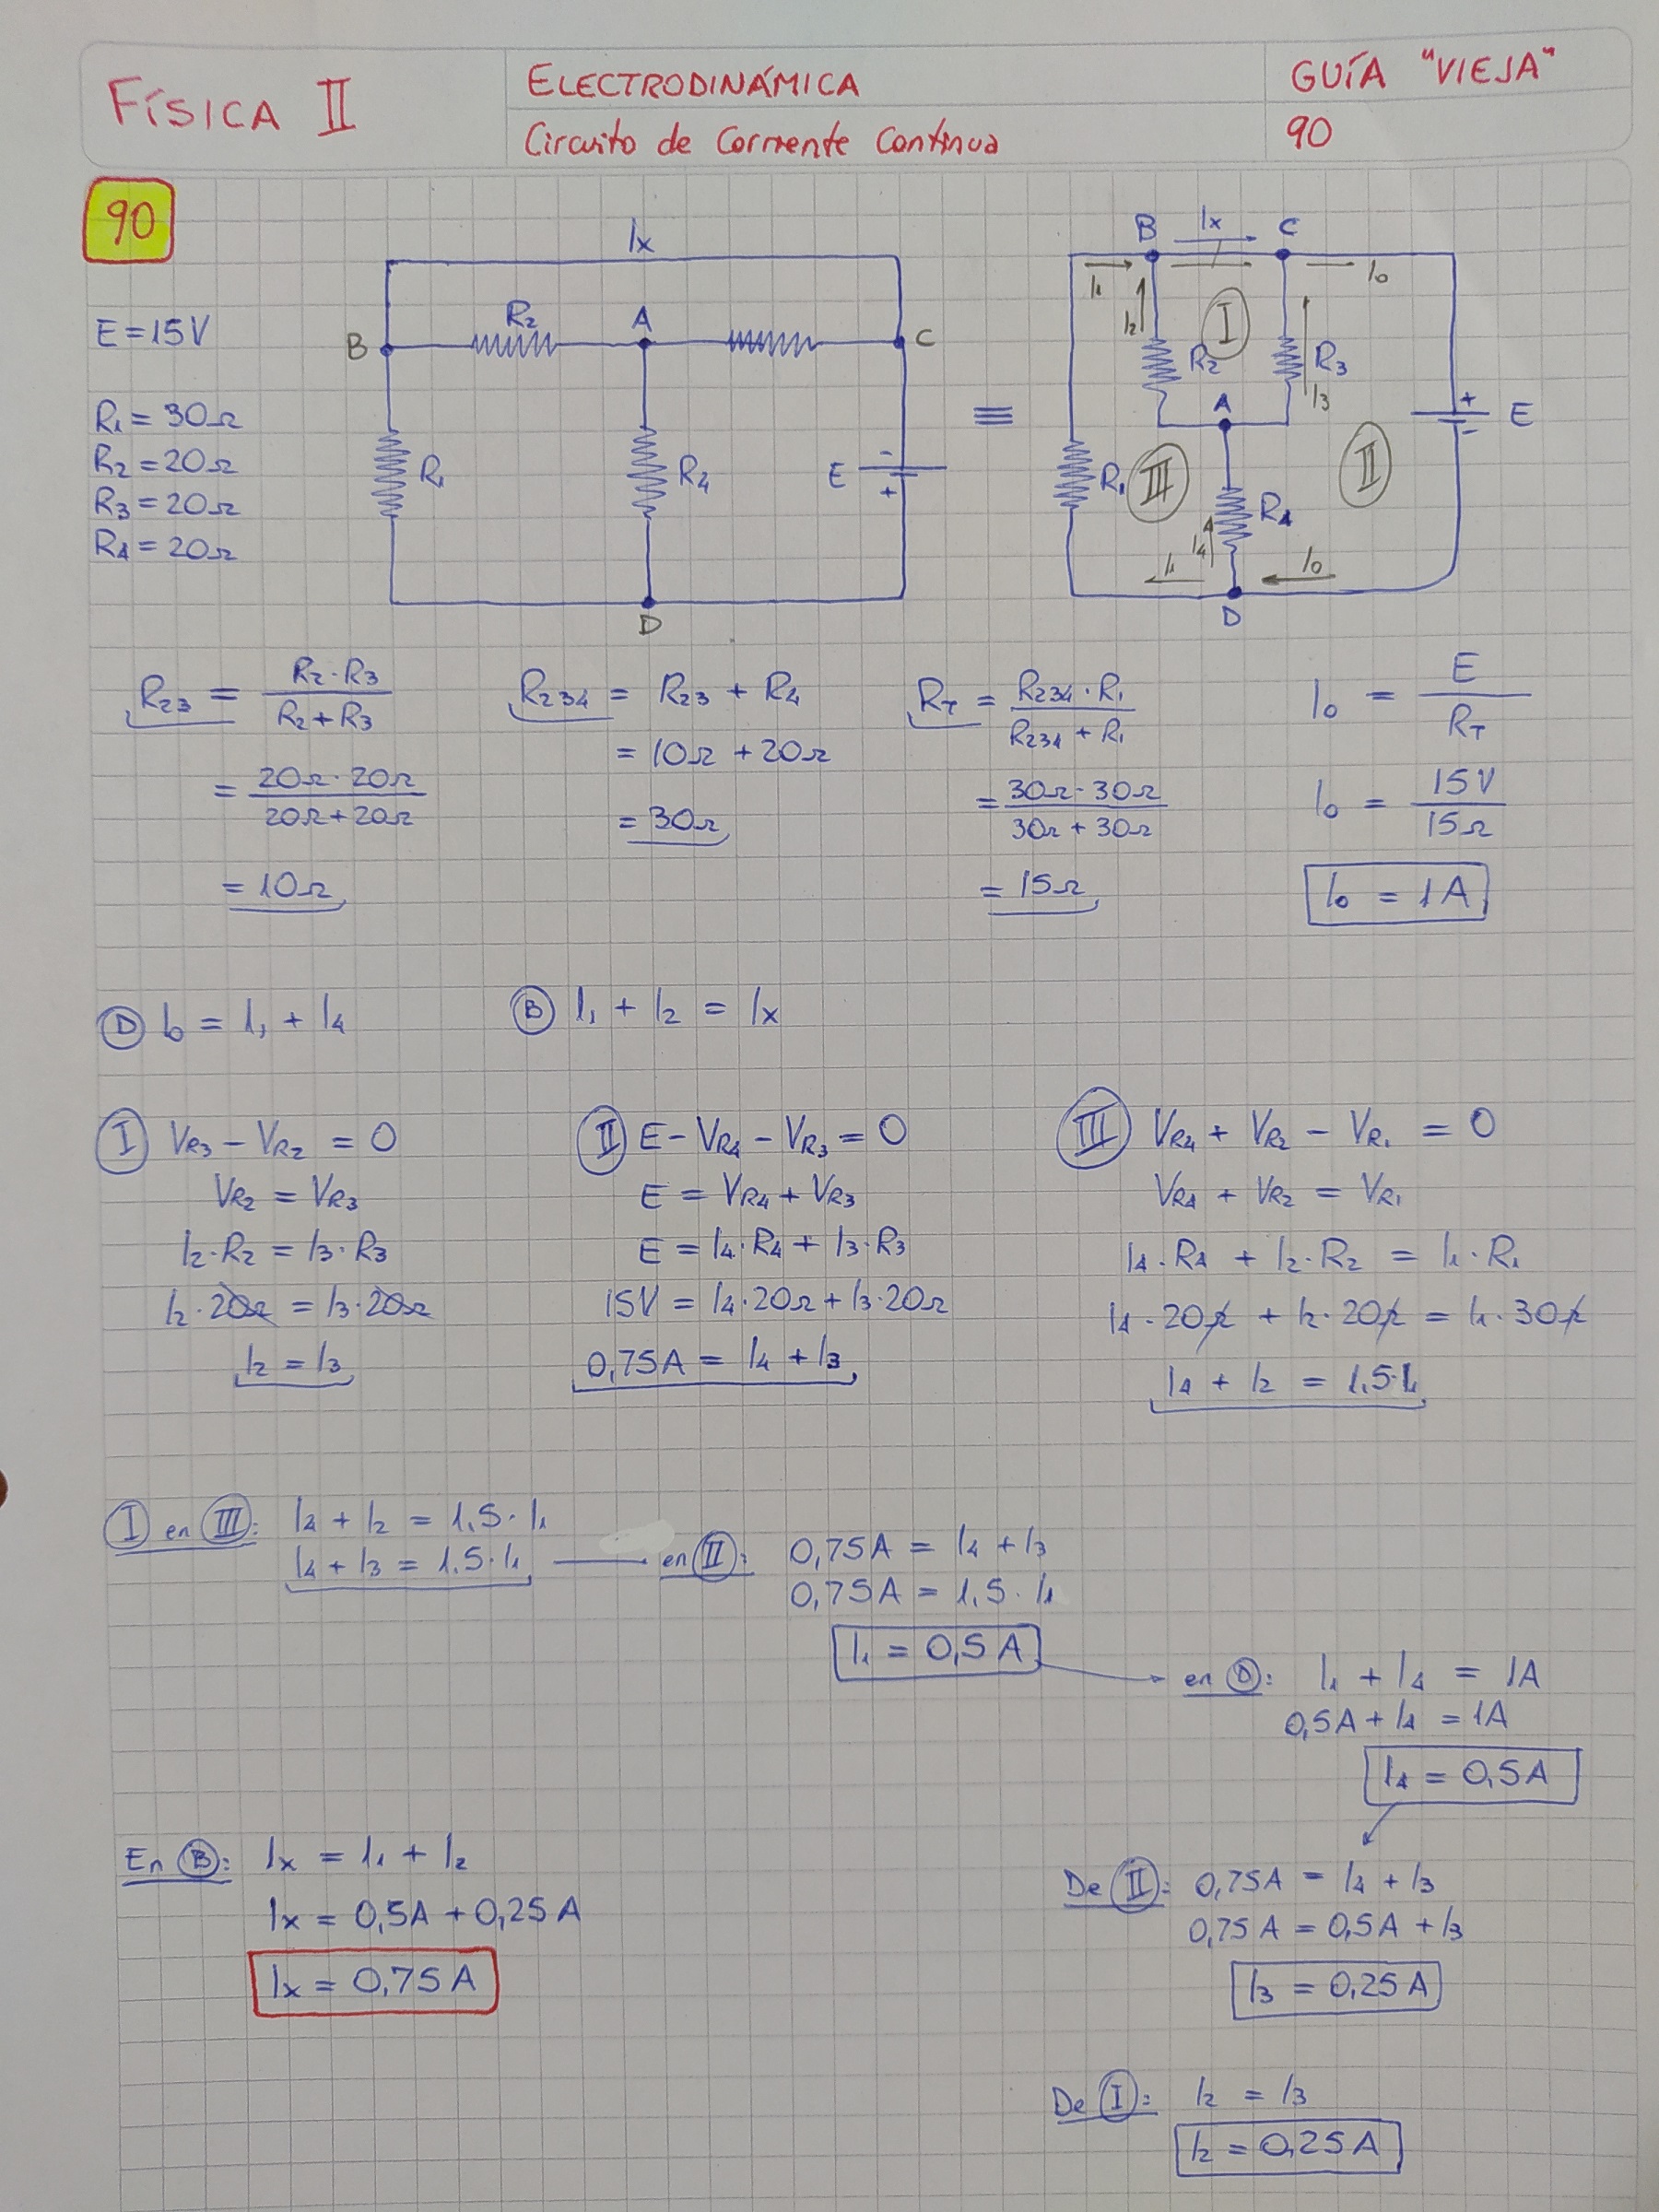 FÍSICA II
ELECTRODINÁMICA
Circuito de Corriente Continua
GUÍA "VIEJA"
90
90
E = 15V
R₁ = 30Ω
R₂ = 20Ω
R₃ = 20Ω
R₄ = 20Ω
Ix
B R₂ A C
R₁ R₄ E - +
D
≡
B Ix C
I₁ I₂ I I₀
R₂ R₃ I₃
A + - E
R₁ III II
R₄ I₄
I₁ I₀
D
R₂₃ = R₂·R₃ / R₂+R₃
= 20Ω·20Ω / 20Ω+20Ω
= 10Ω
R₂₃₄ = R₂₃ + R₄
= 10Ω + 20Ω
= 30Ω
R_T = R₂₃₄·R₁ / R₂₃₄ + R₁
= 30Ω·30Ω / 30Ω + 30Ω
= 15Ω
I₀ = E / R_T
I₀ = 15V / 15Ω
I₀ = 1A
D I₀ = I₁ + I₄
B I₁ + I₂ = Ix
I V_R₃ - V_R₂ = 0
V_R₂ = V_R₃
I₂·R₂ = I₃·R₃
I₂·20Ω = I₃·20Ω
I₂ = I₃
II E - V_R₄ - V_R₃ = 0
E = V_R₄ + V_R₃
E = I₄·R₄ + I₃·R₃
15V = I₄·20Ω + I₃·20Ω
0,75A = I₄ + I₃
III V_R₄ + V_R₂ - V_R₁ = 0
V_R₄ + V_R₂ = V_R₁
I₄·R₄ + I₂·R₂ = I₁·R₁
I₄·20Ω + I₂·20Ω = I₁·30Ω
I₄ + I₂ = 1,5·I₁
I en III: I₄ + I₂ = 1,5·I₁
I₄ + I₃ = 1,5·I₁
en II: 0,75A = I₄ + I₃
0,75A = 1,5·I₁
I₁ = 0,5A
en D: I₁ + I₄ = 1A
0,5A + I₄ = 1A
I₄ = 0,5A
De II: 0,75A = I₄ + I₃
0,75A = 0,5A + I₃
I₃ = 0,25A
De I: I₂ = I₃
I₂ = 0,25A
En B: Ix = I₁ + I₂
Ix = 0,5A + 0,25A
Ix = 0,75A